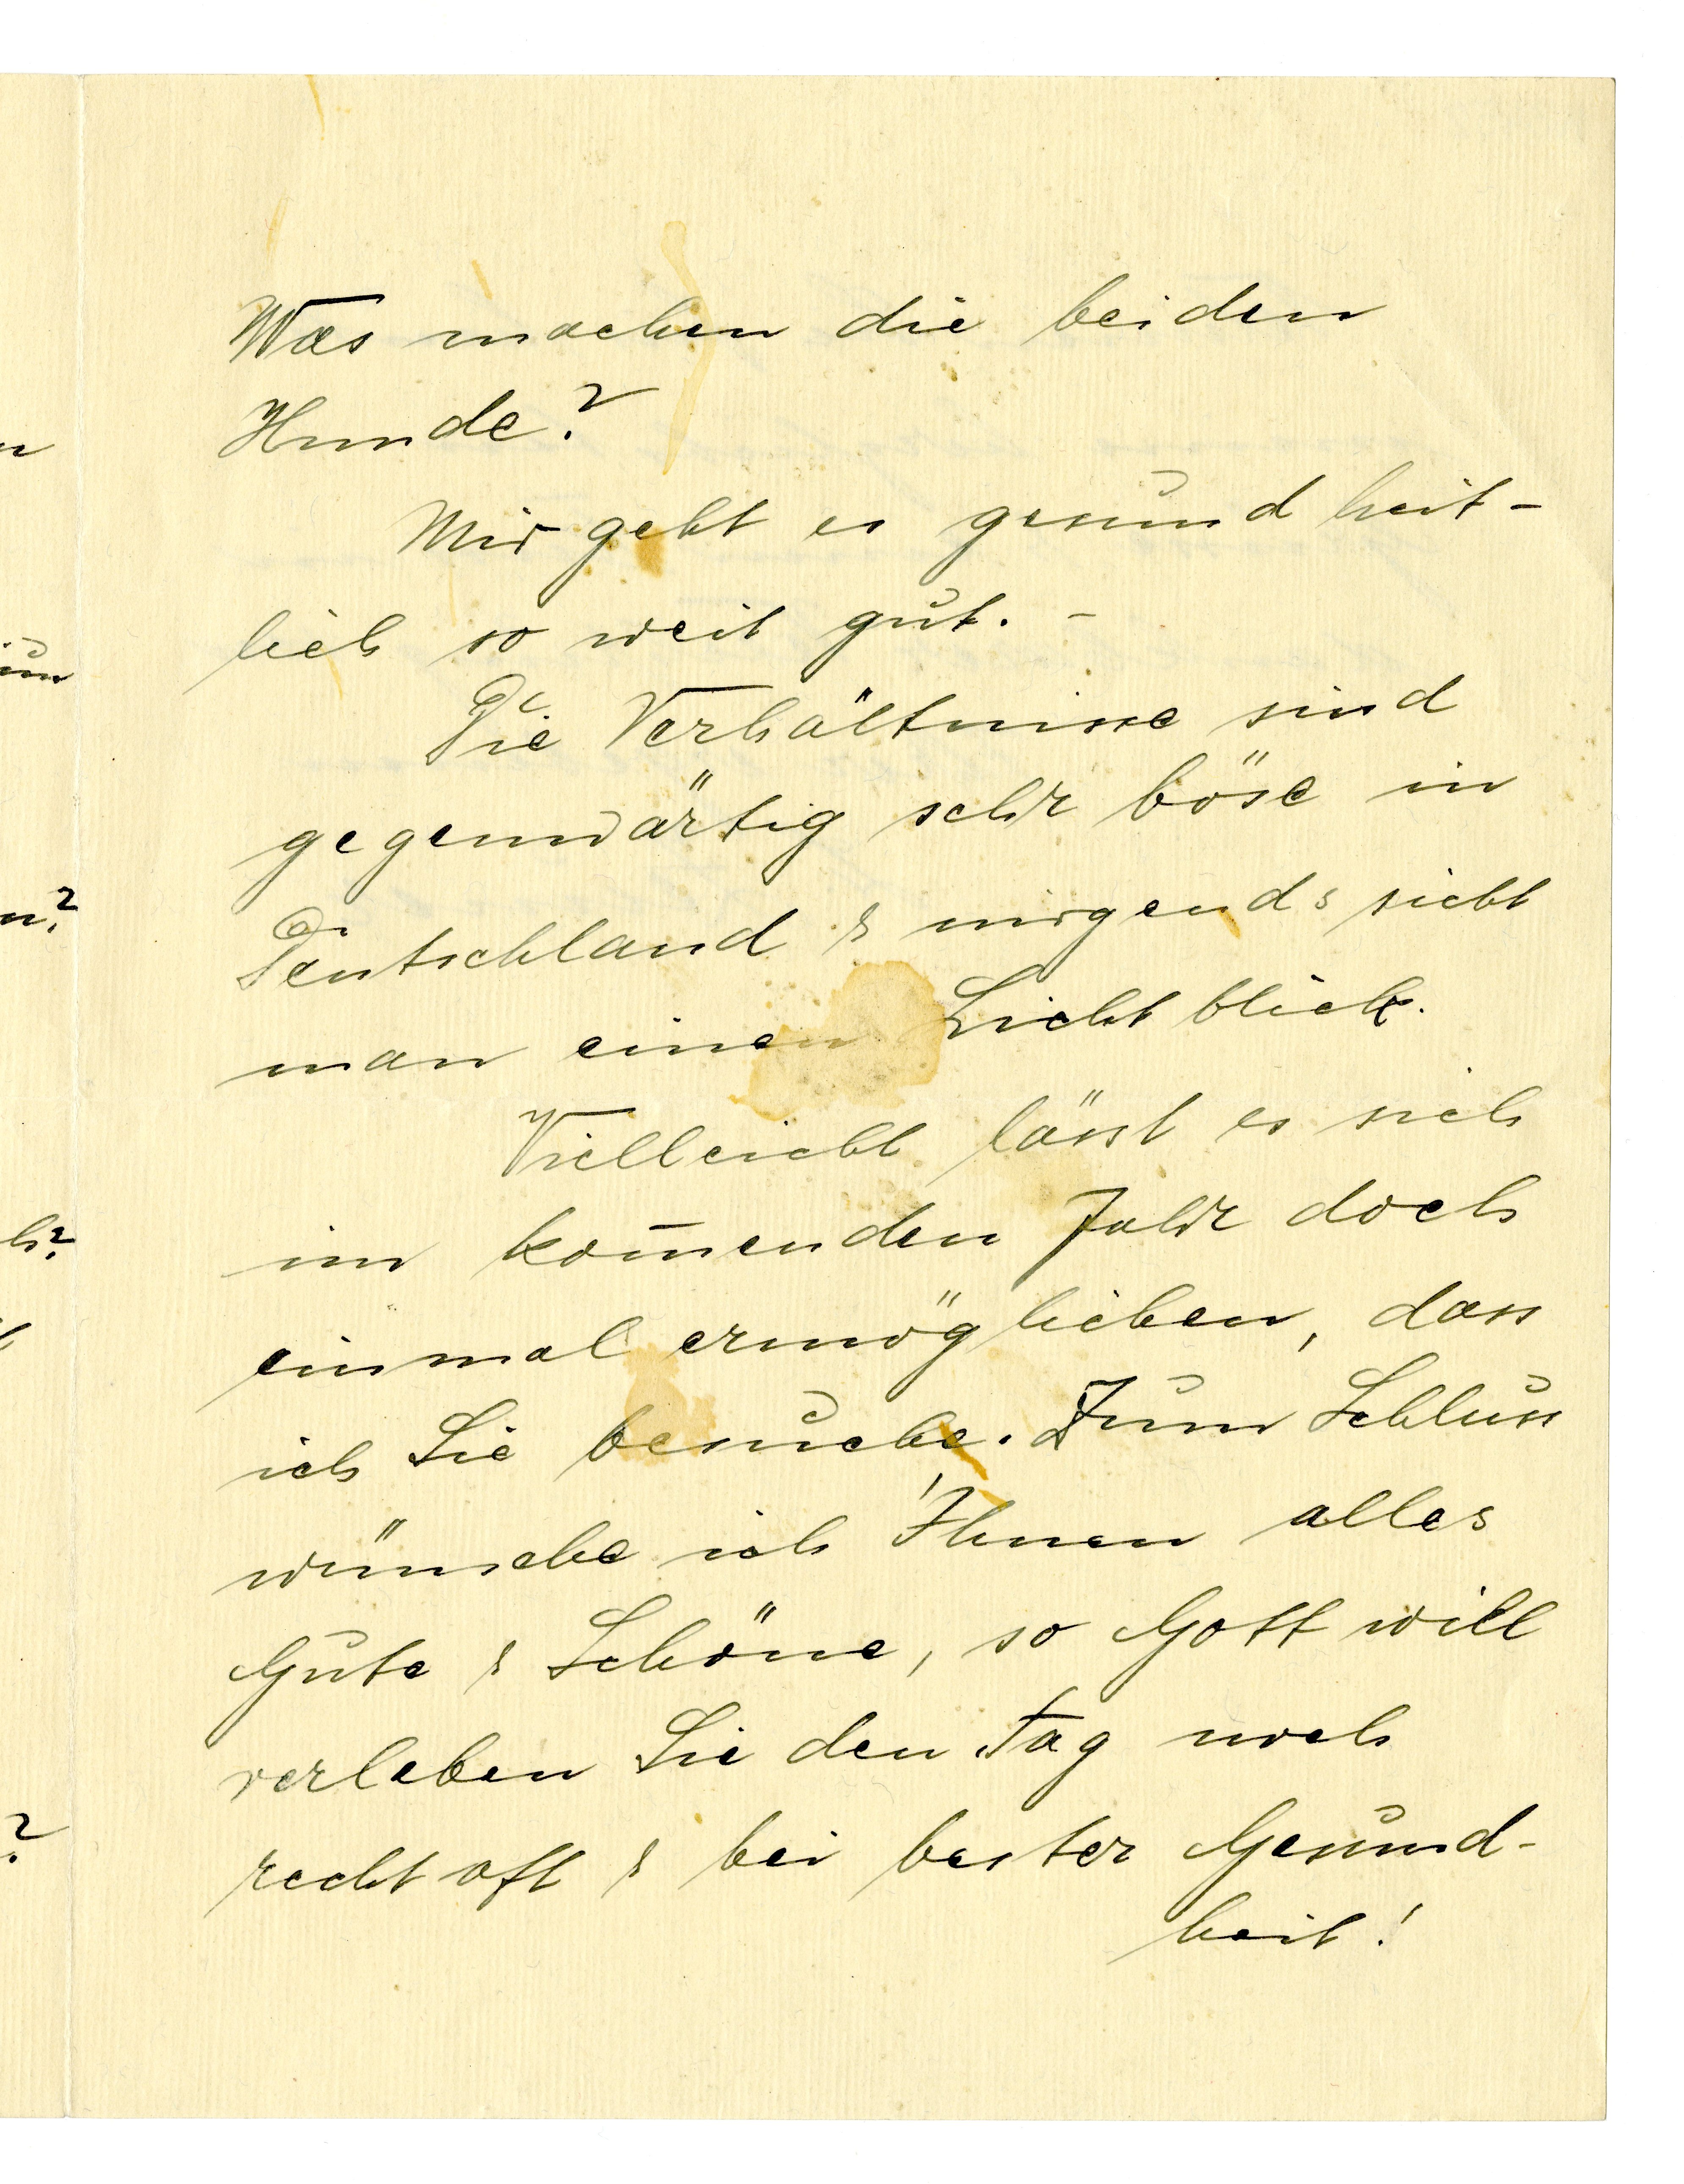 Was machen die beiden
Hunde?
Mir geht es gesundheit-
lich so weit gut. -
Die Verhältnisse sind
gegenwärtig sehr böse in
Deutschland & nirgends sieht
man einen Lichtblick.
Vielleicht lässt es sich
im kom̄enden Jahr doch
einmal ermöglichen, dass
ich Sie besuche. Zum Schluss
wünsche ich Ihnen alles
Gute & Schöne, so Gott will
verleben Sie den Tag noch
recht oft & bei bester Gesund-
heit!